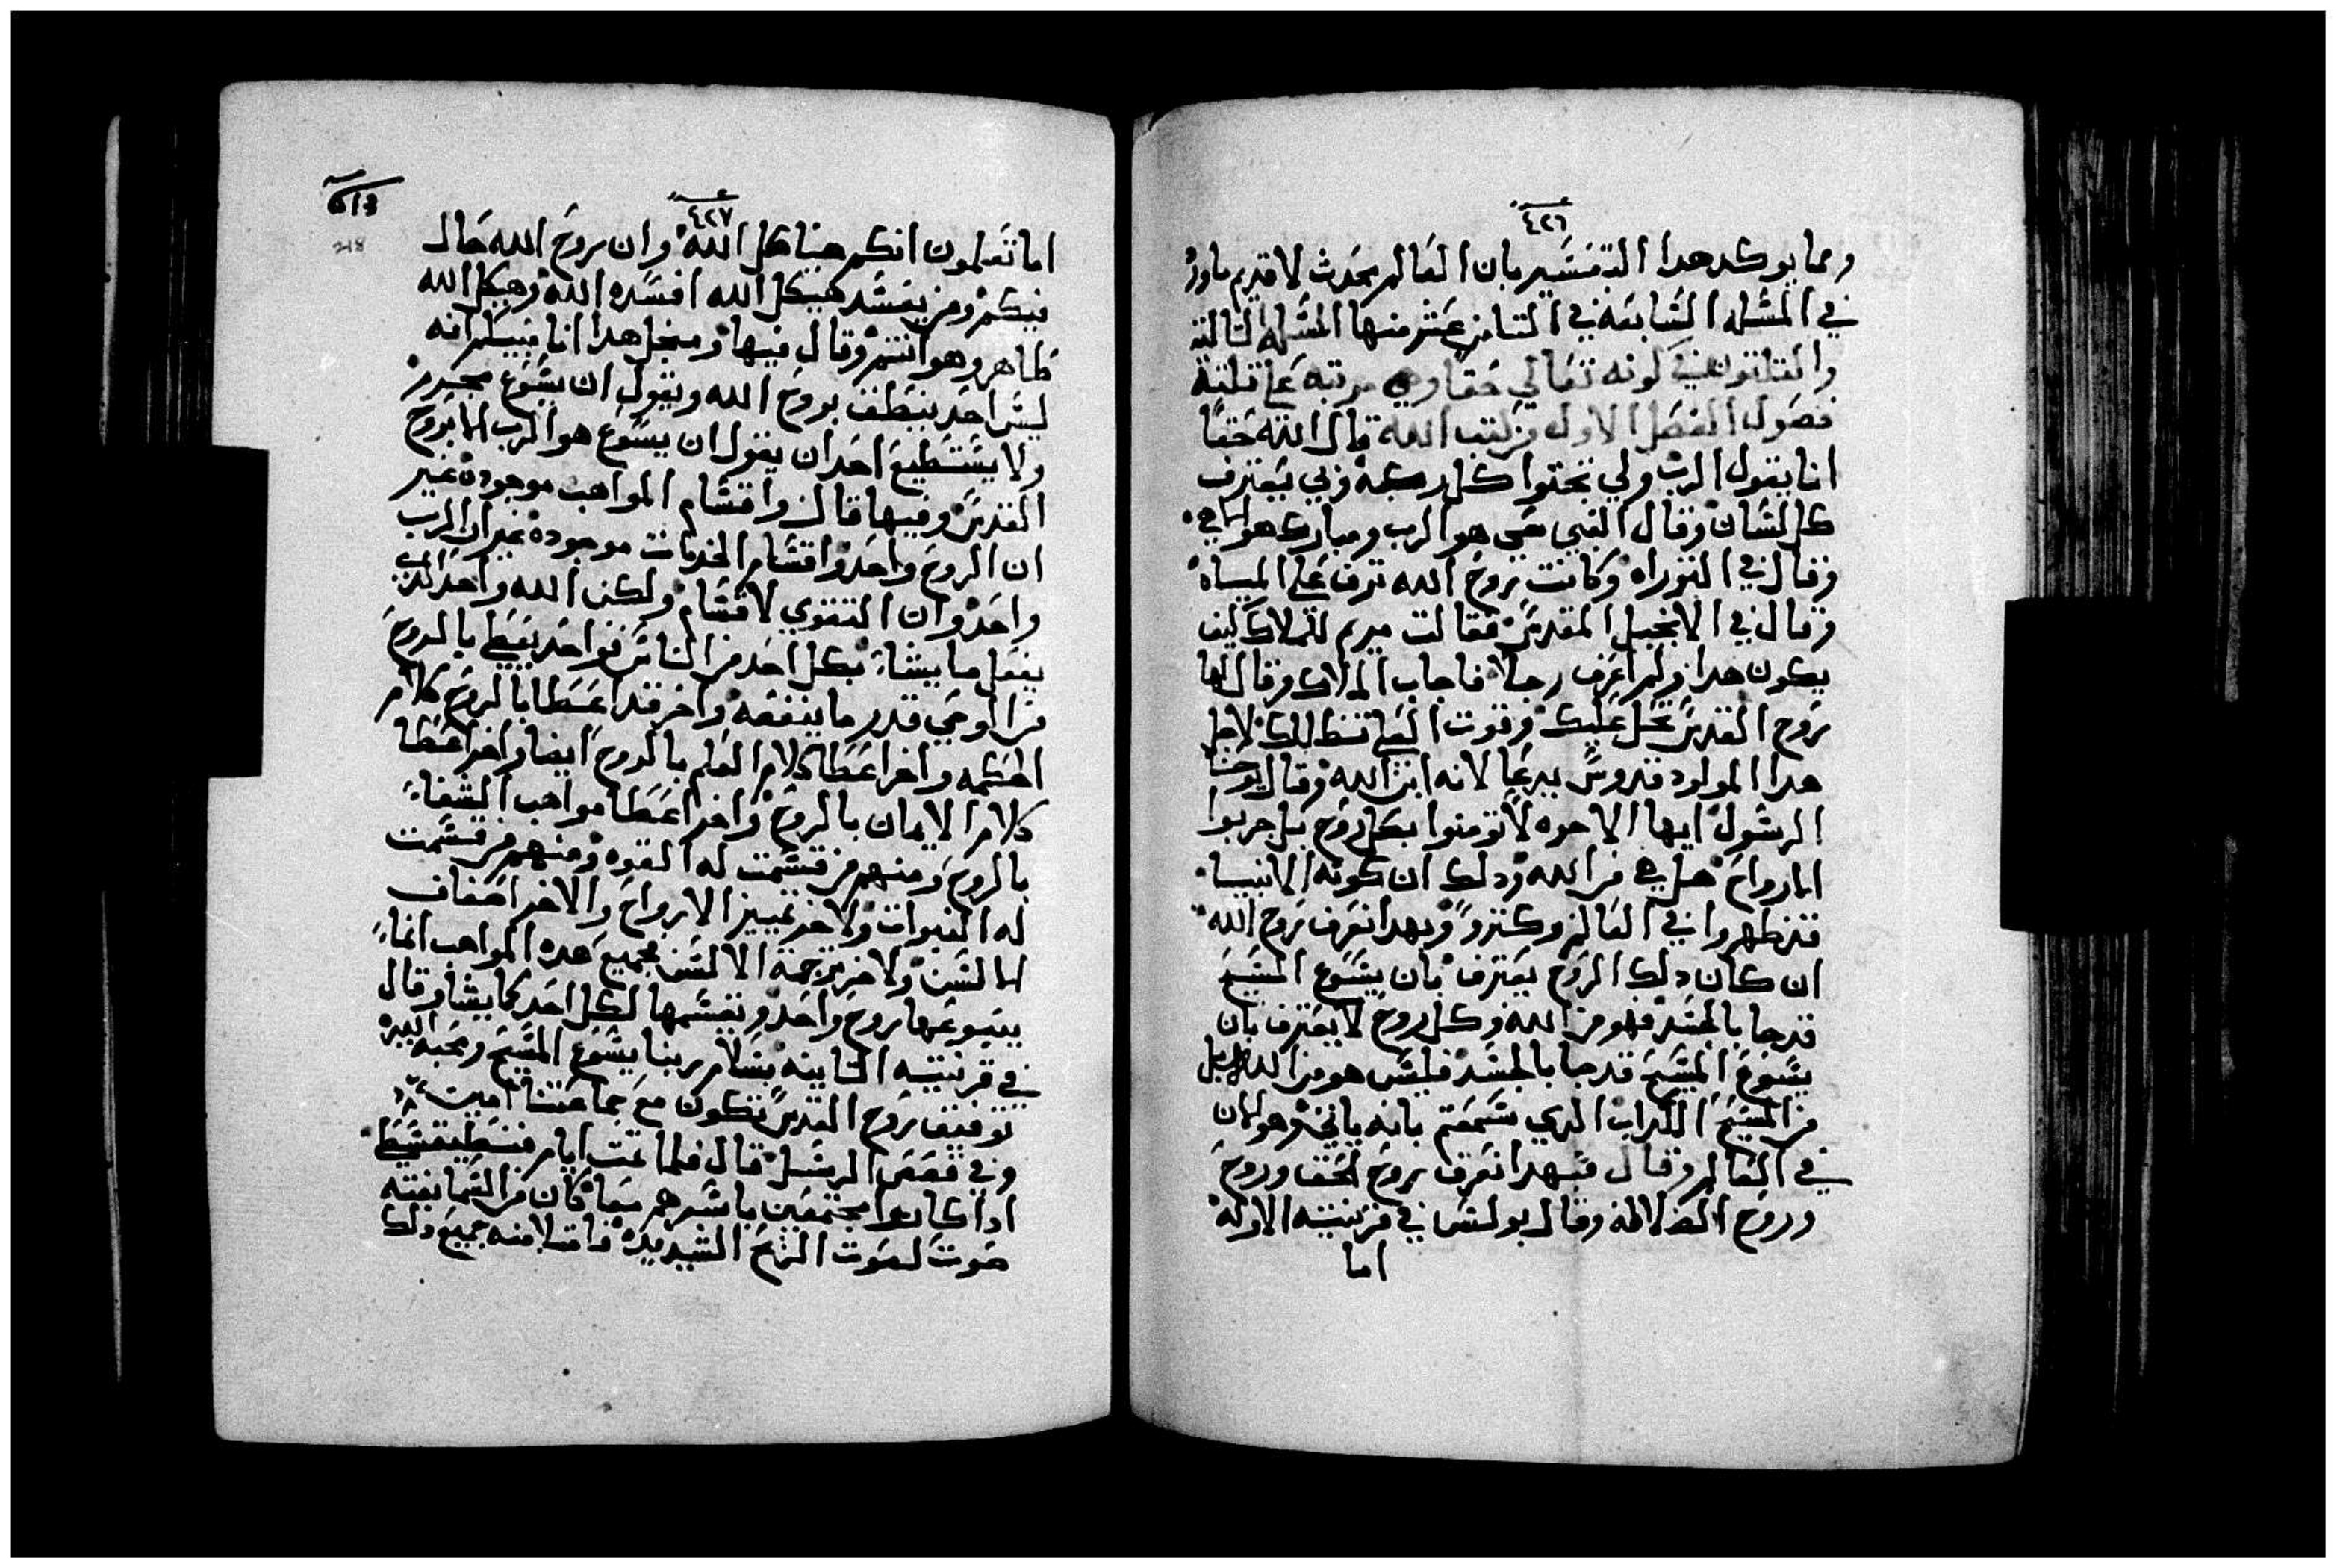 ٤٢٦
ومما يوكد هدا التفسير بان العالم محدث لا قديم ماورد
في المسله السابعة في الثامن عشر منها المسله التالتة
والتلتون في كونه تعالي حقا وهي مرتبه علي تلتة
فصول الفصل الاول من كتب الله قال الله حقا
انا يقول الرب ولي تجتوا كل ركبة وبي يعترف
كل لسان وقال النبي حي هو الرب ومبارك هو الاهي
وقال في التوراه وكانت بروح الله ترف علي المياه
وقال في الانجيل المقدس فقالت مريم للملاك كيف
يكون هدا ولم اعرف رجلا فاجاب الملاك وقال لها
روح القدس تحل عليك وقوت العلي تظللك لاجل
هدا المولود قدوس يدعا لانه ابن الله وقال يوحنا
الرسول ايها الاخوه لا تومنوا بكل روح بل جربوا
الارواح هل هي من الله ودلك ان كونه الانبياء
قد ظهروا في العالم وكتروا وبهدا نعرف روح الله
ان كان دلك الروح يعترف بان يسوع المسيح
قد جا بالجسد فهو من الله وكل روح لا يعترف بان
يسوع المسيح قد جا بالجسد فليس هو من الله بل
من المسيح الكداب الدي سمعتم بانه ياتي وهو الان
في العالم وقال فبهدا نعرف روح الحق وروح
وروح الضلالة وقال بولس في قرنتيه الاوله
اما
٤٢٧
218
اما تعلمون انكم هياكل الله وان روح الله حال
فيكم ومن يفسد هيكل الله افسده الله وهيكل الله
طاهر وهو انتم وقال فيها ومنجل هدا انا مبينكم انه
ليس احد ينطق بروح الله ويقول ان يسوع محروم
ولا يستطيع احد ان يقول ان يسوع هو الرب الا بروح
القدس وفيها قال واقسام المواهب موجوده غير
ان الروح واحد واقسام الخدمات موجوده غير ان الرب
واحد وان التقوي لاقسام ولكن الله واحد الدي
يفعل ما يشاء بكل احد من الناس فواحد يعطي بالروح
من الوحي قدر ما ينفعه واخر قد اعطا بالروح كلام
الحكمه واخر اعطا كلام العلم بالروح ايضا واخر اعطا
كلام الايمان بالروح واخر اعطا مواهب الشفاء
بالروح ومنهم من قسمت له القوه ومنهم من قسمت
له النبوات ولاخر تمييز الارواح والاخر اصناف
الالسن ولاخر ترجمة الالسن بجميع هده المواهب انماء
ينبوعها روح واحد ويقسمها لكل احد كما يشا وقال
في قرنتيه التانيه بسلام ربنا يسوع المسيح ومحبه الله
توفيق روح القدس تكون مع جماعتنا امين
وفي قصص الرسل قال فلما تمت ايام فنطيقسطي
ادا كانوا مجتمعين باسرهم معا كان من السما بغته
صوت كصوت الريح الشديده فامتلا منه جميع دلك